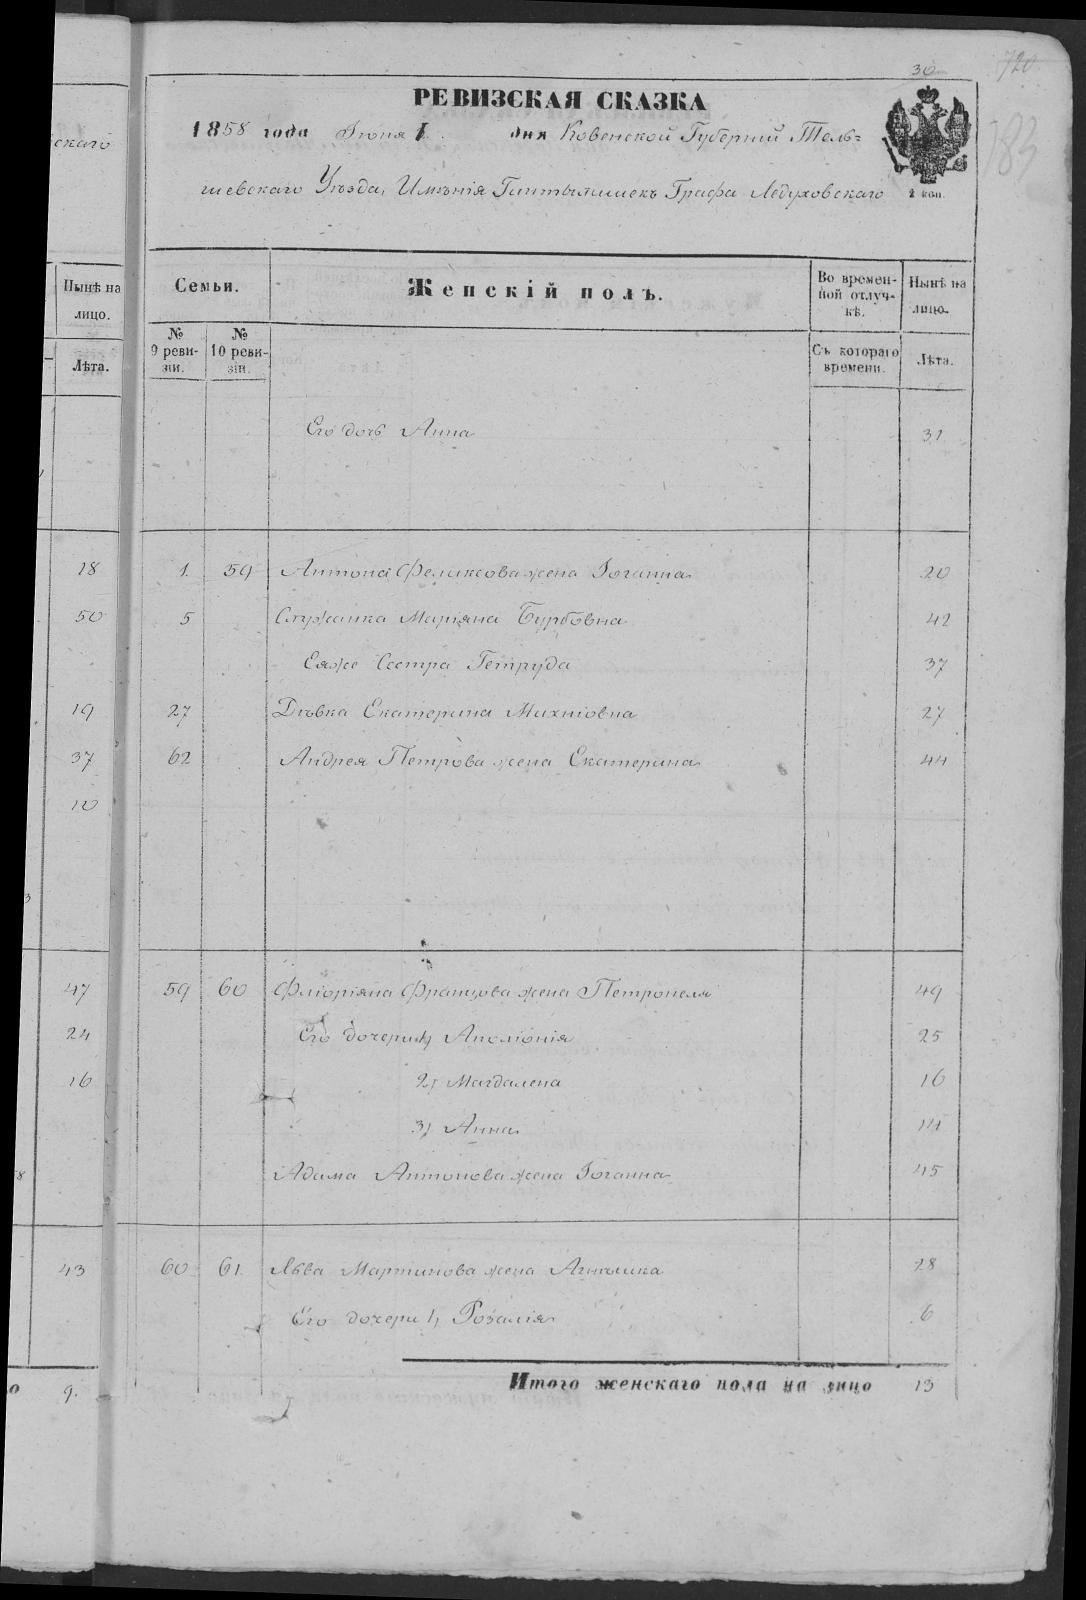 30
720
183
РЕВИЗСКАЯ СКАЗКА
1858 года Іюня 1 дня Ковенской Губерніи Тель-
шевскаго Уѣзда, Имѣнія Гинтылишекъ Графа Ледуховскаго
2 коп.
скаго
Нынѣ на лицо.
Лѣта.
Семьи.
Женскій полъ.
Во времен-
ной отлуч-
кѣ.
Нынѣ на
лицо.
№ 9 реви-
зіи.
№ 10 реви-
зіи.
Съ котораго
времени.
Лѣта.
Его дочь Анна 31
18 1 59 Антона Феликсова жена Іоганна 20
50 5 Служанка Маріяна Бурбовна 42
Еяже Сестра Гетруда 37
19 27 Дѣвка Екатерина Михніовна 27
37 62 Андрея Петрова жена Екатерина 44
10
47 59 60 Флоріяна Францова жена Петронеля 49
24 Его дочери 1, Аполіонія 25
16 2, Магдалена 16
3, Анна 14
Адама Антонова жена Іоганна 45
43 60 61 Льва Мартинова жена Агнѣшка 28
Его дочери 1, Розалія 6
9. Итого женскаго пола на лицо 13